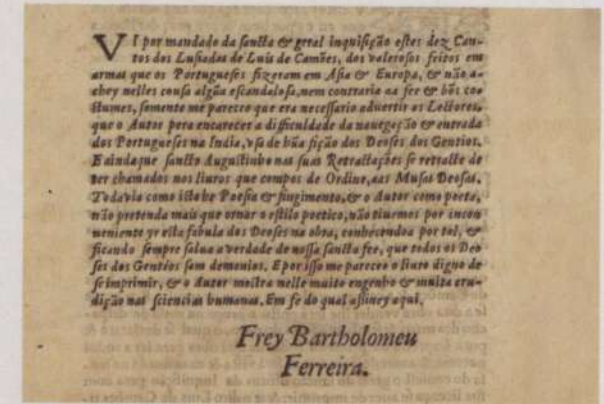 VI por mandado da sancta & geral inquisição estes dez Can-
tos dos Lusiadas de Luis de Camões, dos valerosos feitos em
armas que os Portugueses fizeram em Asia & Europa, & não a-
chey nelles cousa algũa escandalosa, nem contraria aa fee & bõs co-
stumes, somente me pareceo que era necessario advertir os Lectores,
que o Autor pera encarecer a difficuldade da nauegação & entrada
dos Portugueses na India, vsa de hũa fição dos Deoses dos Gentios.
E aindaque sancto Augustinho nas suas Retractações se retracte de
ter chamado nos liuros que compos de Ordine, aas Musas Deosas.
Todavia como isto he Poesia & fingimento, & o Autor como poeta,
não pretenda mais que ornar o estilo poetico, não tiuemos por incon
ueniente yr esta fabula dos Deoses na obra, conhecendoa por tal, &
ficando sempre salua a verdade de nossa sancta fee, que todos os Deo
ses dos Gentios sam demonios. E por isso me pareceo o liuro digno de
se imprimir, & o Autor mostra nelle muito engenho & muita eru-
dição nas sciencias humanas. Em fe do qual assiney aqui.
Frey Bartholomeu
Ferreira.